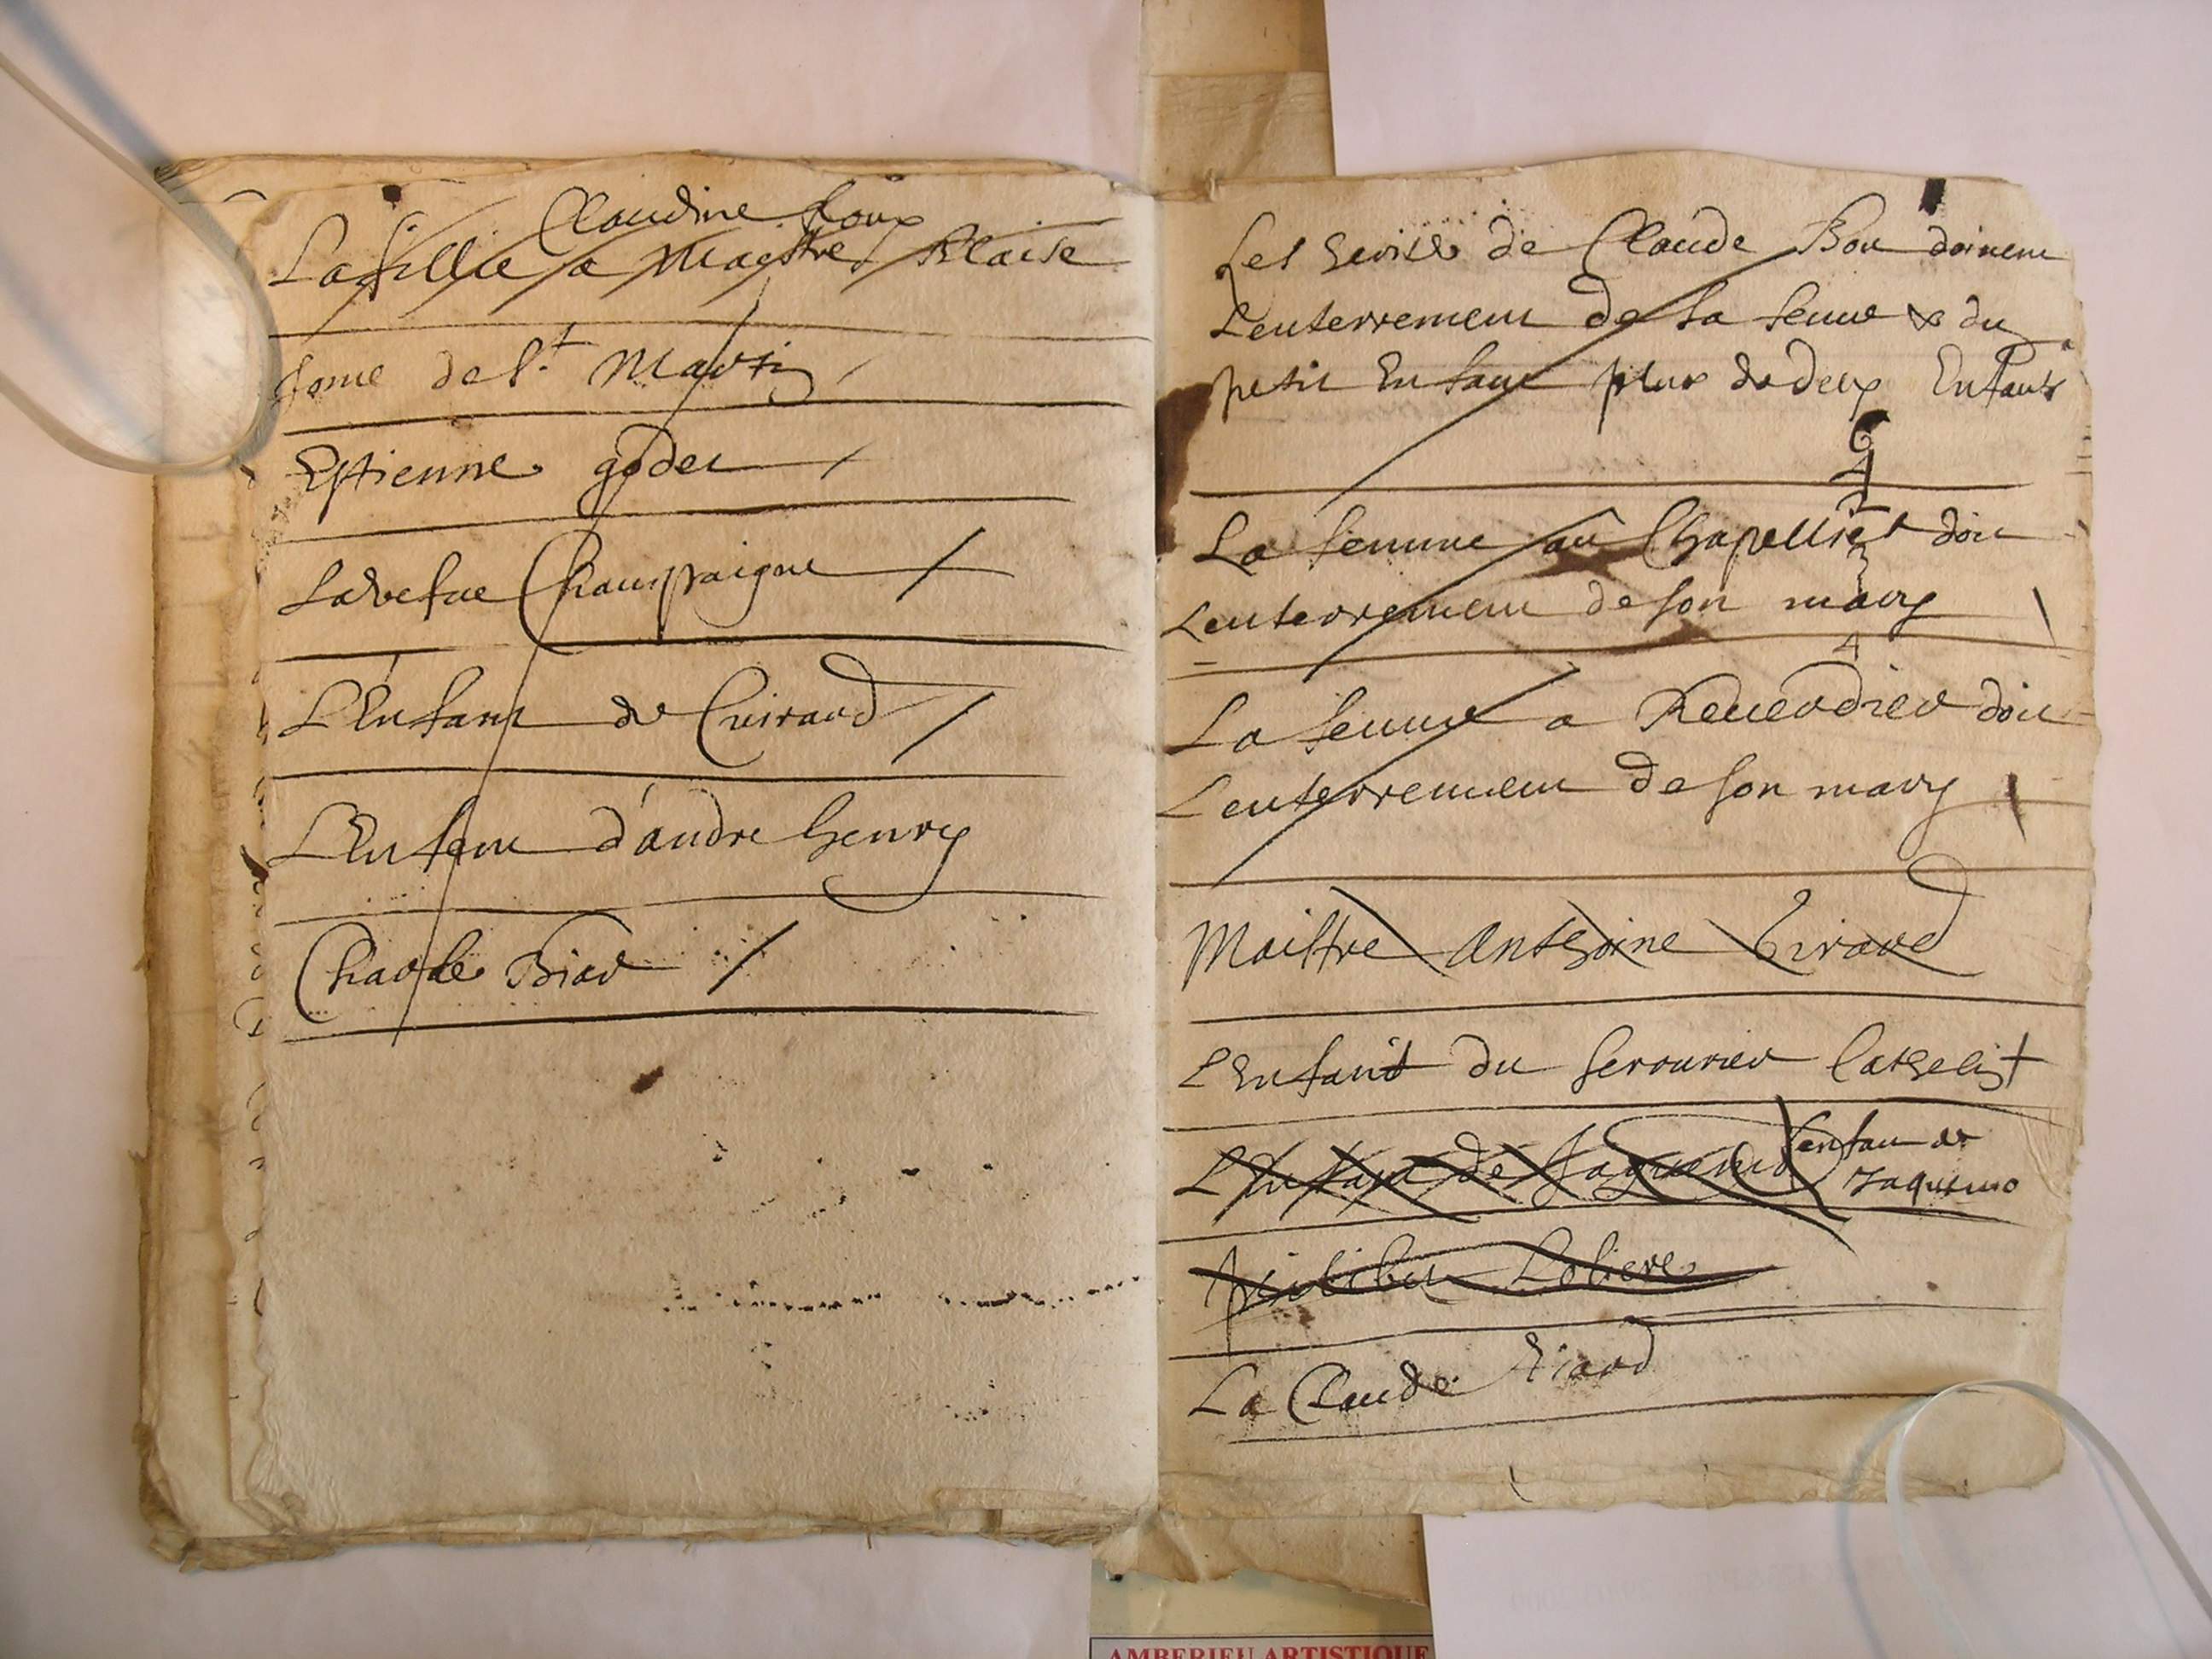 Claudine Loup
La fille a Magstre Blaise
fome de St. Martin
Estienne godet
La vefue Champaigne
L'Enfant de Cuirard
L'Enfant d'andre henry
Charle Biar
Les heritie de Claude Bon doivent
Lenterrement de sa femme & du
petit Enfant plus de deux Enfants
6
4
2
La femme au Chapellier doit
3
Lenterrement de son mary
4
La femme a Reuerdier doit
Lenterrement de son mary
Maistre Anthoine Girard
L'Enfant du serrurier Cathelin
L'Enfant de Jaquemo
lenfan de
Jaquemo
La Claude
AMBERIEU ARTISTIQUE